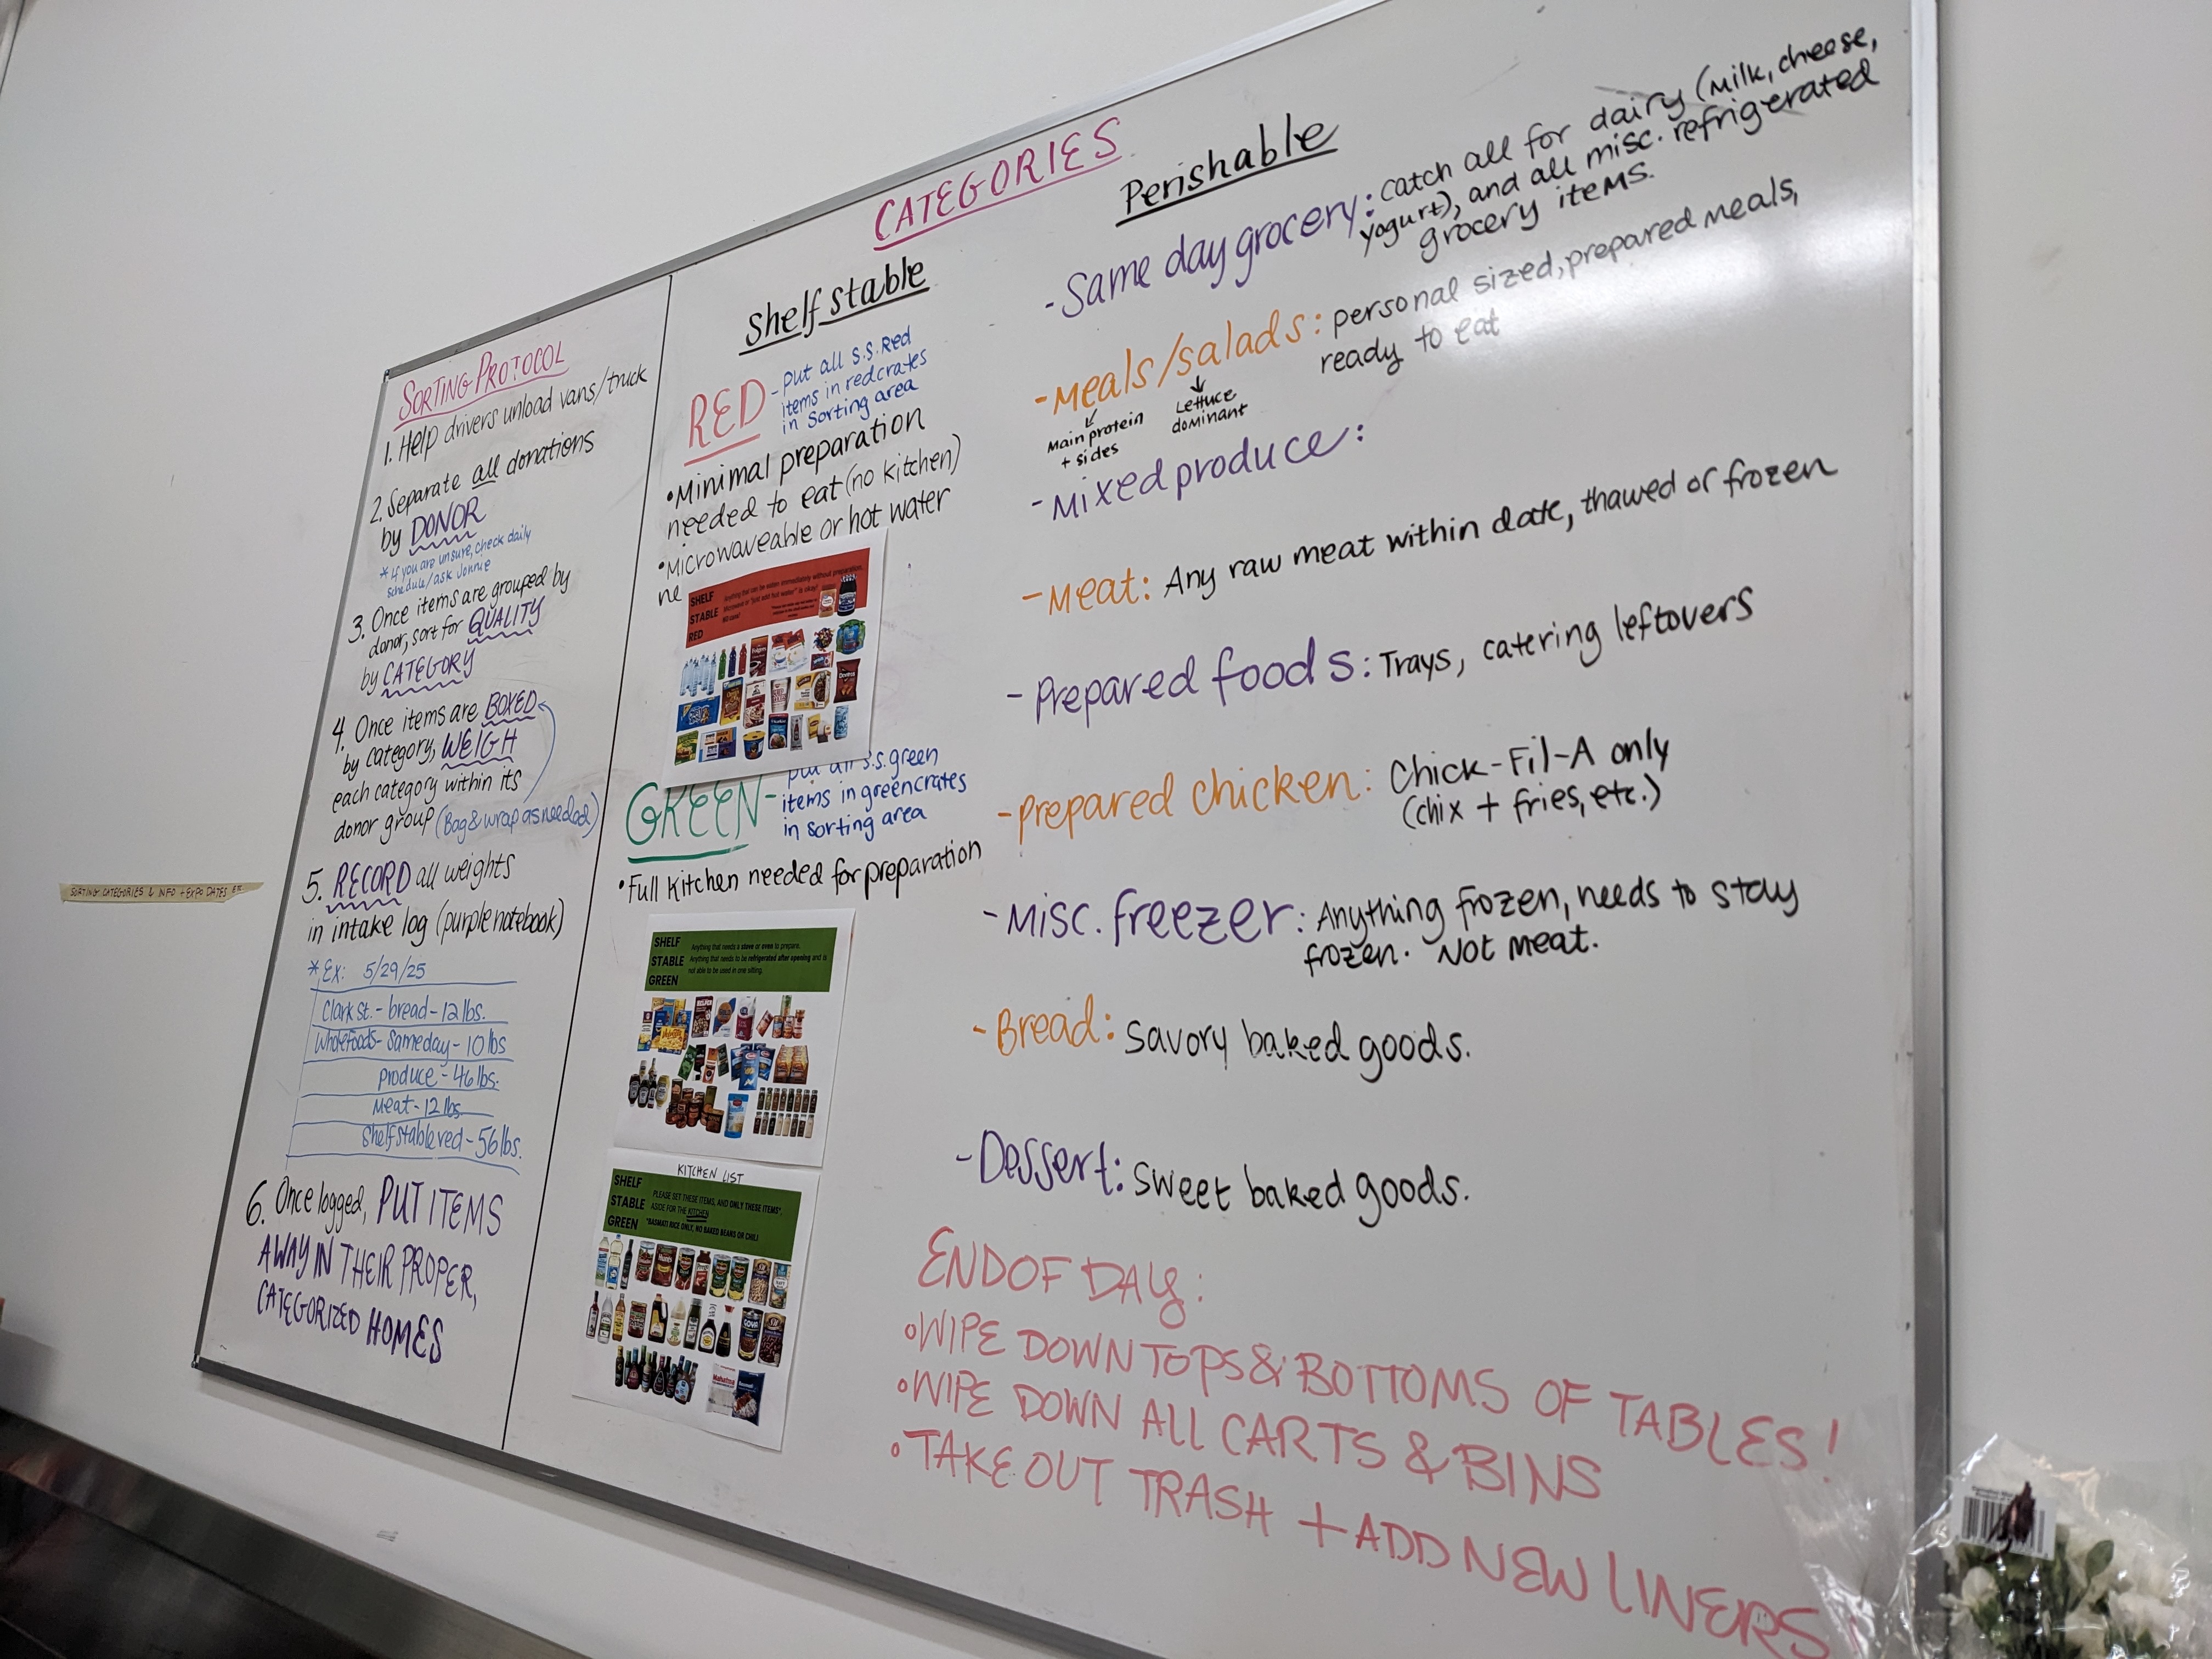 SORTING PROTOCOL
1. Help drivers unload vans/truck
2. Separate all donations
by DONOR
* If you are unsure, check daily
schedule/ask Jonnie
3. Once items are grouped by
donor, sort for QUALITY
by CATEGORY
4. Once items are BOXED
by category, WEIGH
each category within its
donor group (Bag & wrap as needed)
5. RECORD all weights
in intake log (purple notebook)
* Ex: 5/29/25
Clark st. - bread - 12 lbs.
Whole Foods - Same day - 10 lbs
produce - 46 lbs.
Meat - 12 lbs.
Shelf stable red - 56 lbs.
6. Once logged, PUT ITEMS
AWAY IN THEIR PROPER,
CATEGORIZED HOMES
SORTING CATEGORIES & INFO + EXPO DATES ETC
CATEGORIES
Shelf stable
RED - put all S.S. Red
items in red crates
in sorting area
• Minimal preparation
needed to eat (no kitchen)
• Microwaveable or hot water
ne
SHELF
STABLE
RED
Anything that can be eaten immediately without preparation.
GREEN - put all S.S. green
items in green crates
in sorting area
• Full kitchen needed for preparation
SHELF
STABLE
GREEN
Anything that needs a stove or oven to prepare.
Anything that needs to be refrigerated after opening and is
not able to be used in one sitting.
KITCHEN LIST
SHELF
STABLE
GREEN
PLEASE SET THESE ITEMS, AND ONLY THESE ITEMS*,
ASIDE FOR THE KITCHEN
*BASMATI RICE ONLY, NO BAKED BEANS OR CHILI
Perishable
- Same day grocery: catch all for dairy (milk, cheese,
yogurt), and all misc. refrigerated
grocery items.
- Meals/salads: personal sized, prepared meals,
ready to eat
Main protein
+ sides
Lettuce
dominant
- Mixed produce:
- Meat: Any raw meat within date, thawed or frozen
- Prepared foods: Trays, catering leftovers
- Prepared chicken: Chick-Fil-A only
(chix + fries, etc.)
- Misc. freezer: Anything frozen, needs to stay
frozen. Not meat.
- Bread: Savory baked goods.
- Dessert: Sweet baked goods.
END OF DAY:
• WIPE DOWN TOPS & BOTTOMS OF TABLES!
• WIPE DOWN ALL CARTS & BINS
• TAKE OUT TRASH + ADD NEW LINERS